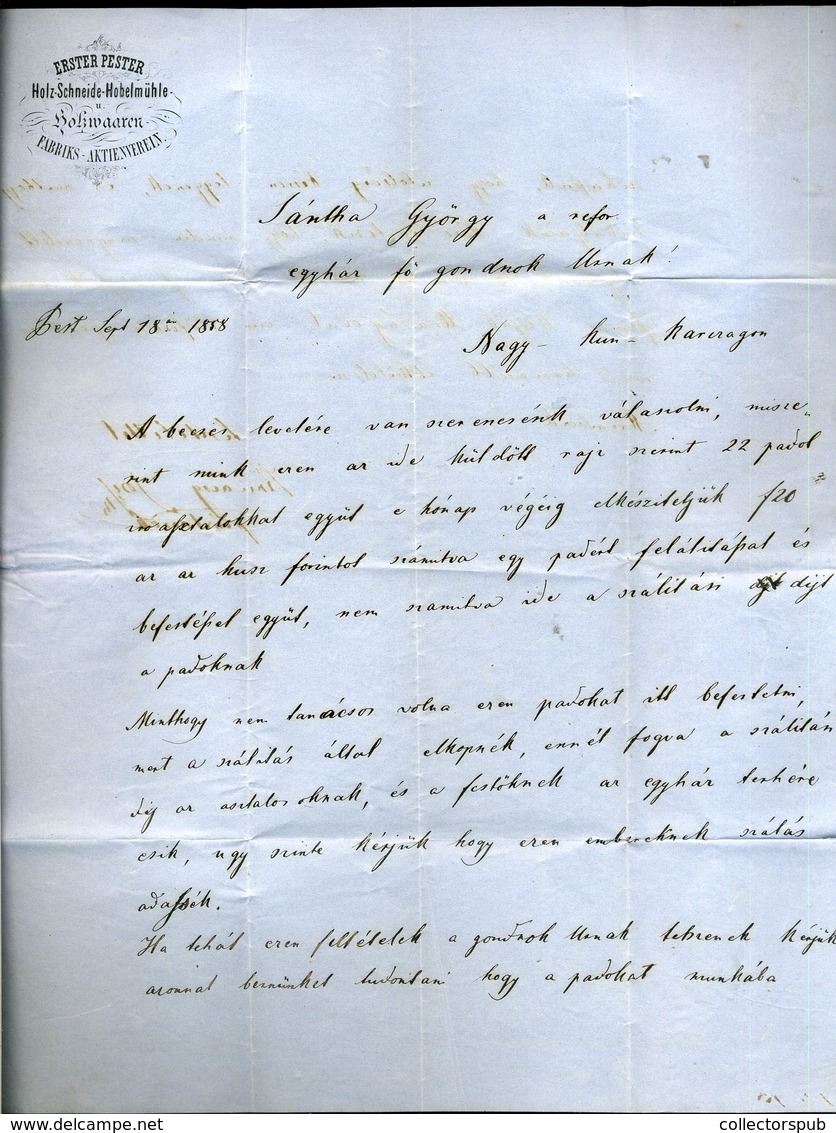 ERSTER PESTER
Holz-Schneide-Hobelmühle-
u.
Holzwaaren-
FABRIKS-AKTIENVEREIN.
Sántha György a refor.
egyház fö gondnok Urnak!
Pest Sept 18án 1858
Nagy-Kun-Karczagon
A becses levelére van szerencsénk válaszolni, misze„
rint mink ezen az ide küldött rajz szerint 22 padot
iroasztalokkal együt e hónap végéig elkészíteljük f20
az az husz forintot számitva egy padért felálitással és
befestéssel együt, nem szamitva ide a szálitási dijt
a padoknak
Minthogy nem tanácsos volna ezen padokat itt befestetni,
mert a szálitás által elkopnék, ennél fogva a szálitási
dij az asztalosoknak, és a festöknek az egyház terhére
esik, ugy szinte kérjük hogy ezen embereknek szálás
adassék.
Ha tehát ezen feltételek a gondnok Urnak tetszenek kérjük
azonnal bennünket tudositani hogy a padokat munkába
collectorspub